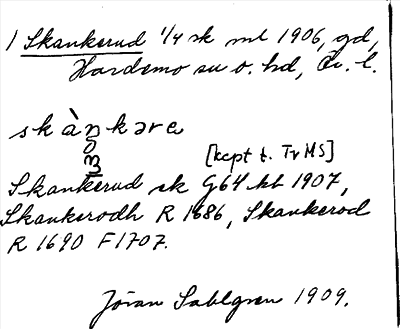 1 Skankerud 1/4 sk ml 1906, gd,
Hardemo su o. hd, Ör. l.
skàŋkəre
[kcpt t. TvMS]
Skankerud ek G64 kb 1907,
Skankerodh R 1686, Skankerod
R 1690 F1707.
Jöran Sahlgren 1909.